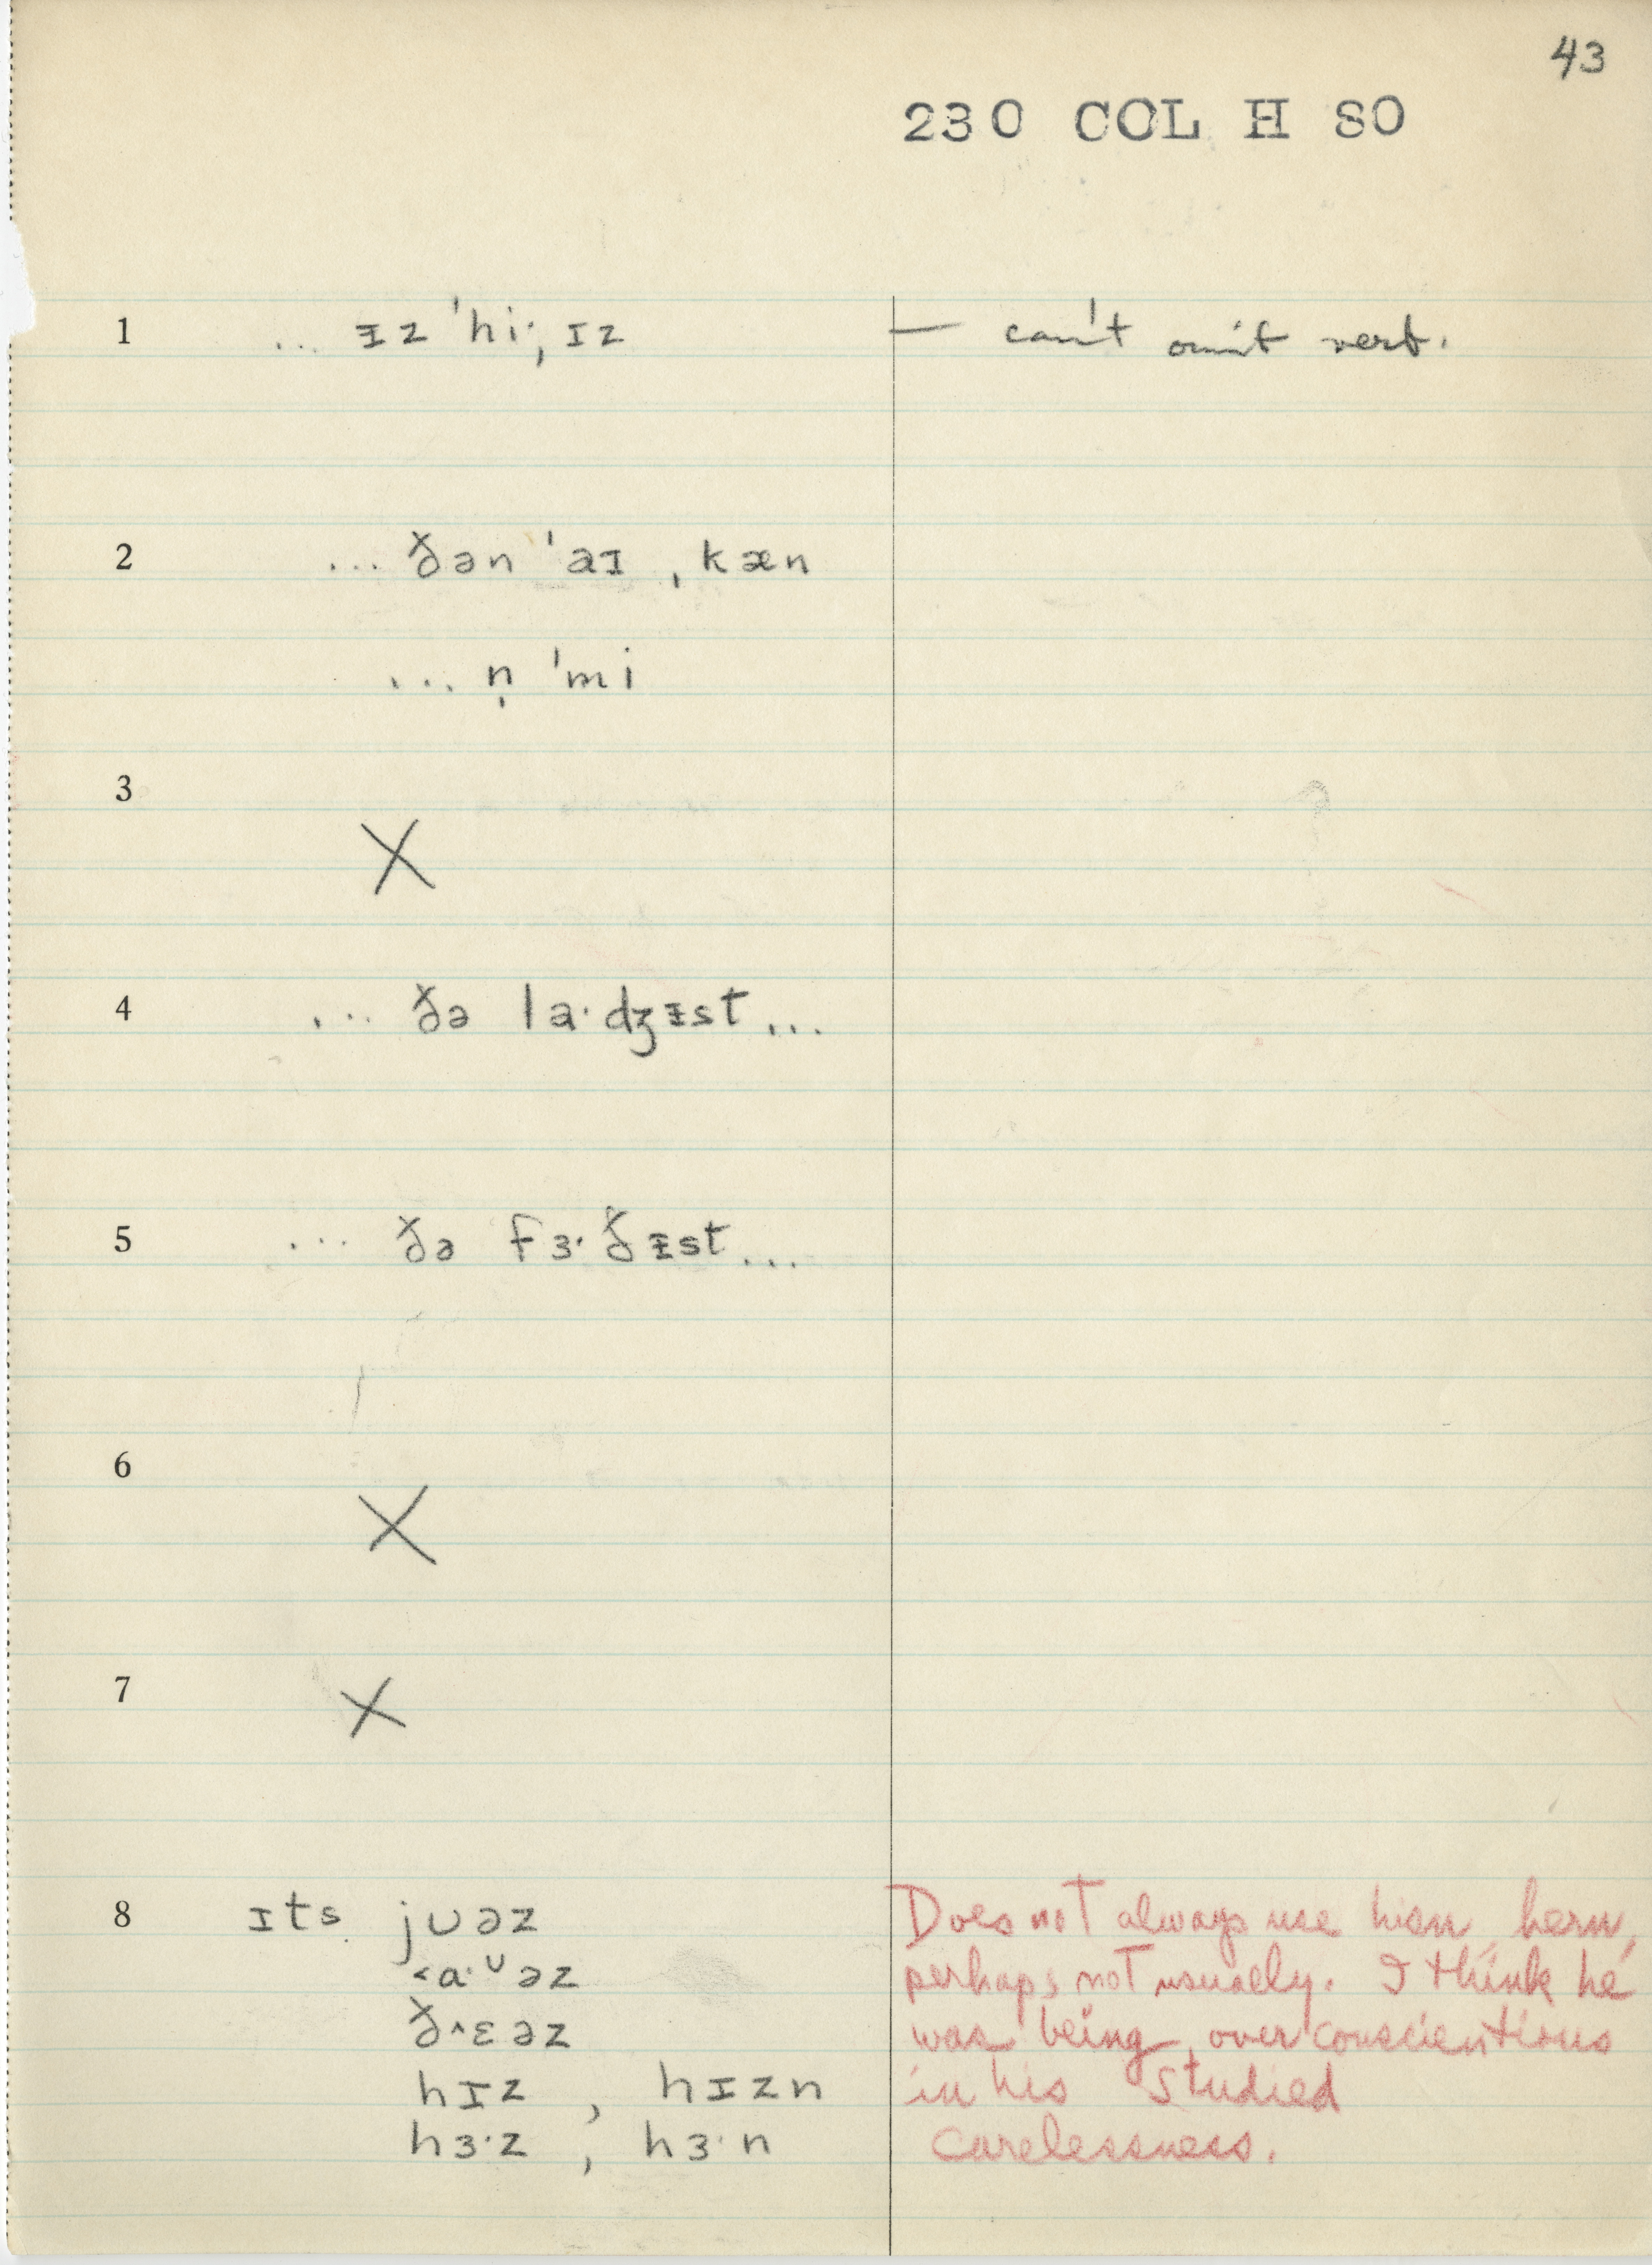 43
230 COL H SO
1 ... ᵻz ˈhi·ˌɪz — can't omit verb.
2 ... ðən ˈaɪ ˌkæn
... n̩ ˈmi
3
X
4 ... ðə la·dʒᵻst ...
5 ... ðə fɜ·ðᵻst ...
6
X
7 X
8 ɪts jʊəz
˂ɑ·ᶷəz
ð^ɛəz
hɪz , hɪzn
hɜ·z , hɜ·n
Does not always use hisn, hern,
perhaps not usually. I think he
was being over conscientious
in his studied
carelessness.